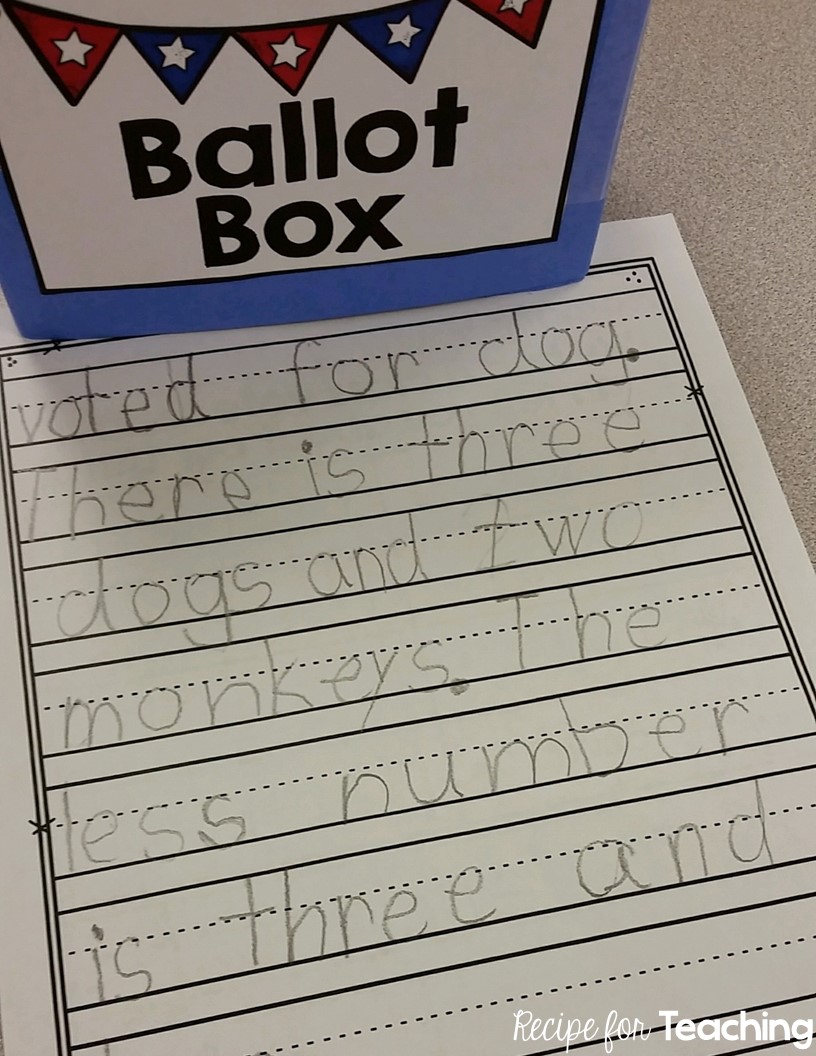 Ballot
Box
voted for dog.
There is three
dogs and two
monkeys. The
less number
is three and
Recipe for Teaching